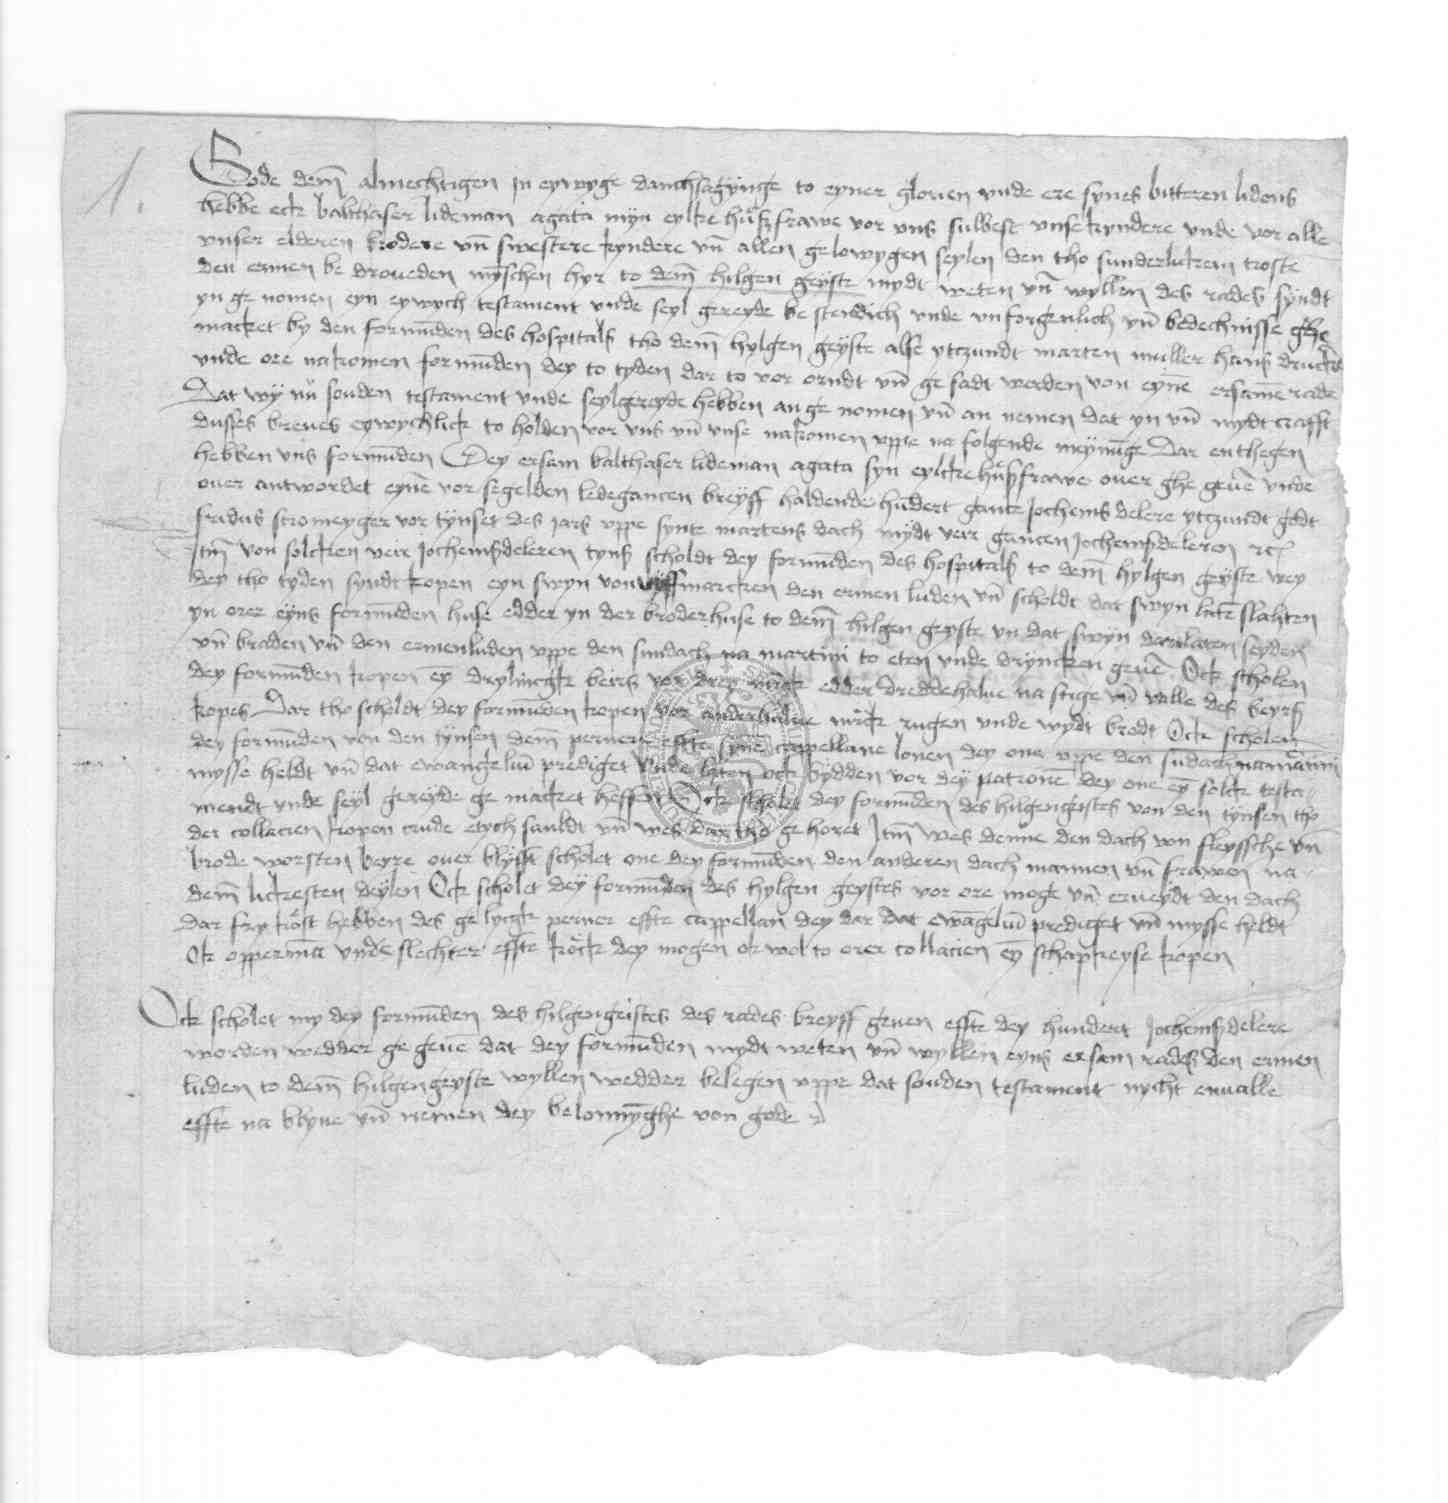 1.
Gode dem̄ almechtigen in eywyge danchsagynge to eyner glorien vnde ere synes bitteren lidens
hebbe eck balthaser lideman agata myn eylke hußfrawe vor vns sulvest vnse kyndere vnde vor alle
vnser elderen brodere vn̄ swestere kyndere vn̄ allen gelowygen seylen den tho sunderlickem troste
den ermen bedroueden myschen hyr to dem̄ hilgen geyste mydt weten vn̄ wyllen des rades syndt
yn ge nomen eyn eywych testament vnde seyl gereyde be stendich vnde vnforgenlich vn̄ bedechnisse ghe
macket by den formūden des hospitals tho dem̄ hylgen geyste alse ytczundt marten muller hans
vnde ore nakomen formūden dey to tyden dar to vor orndt vn̄ ge sadt werden von eynē ersamē rade
Dat wy nů souden testament vnde seylgereyde hebben an ge nomen vn̄ an nemen dat yn vn̄ mydt crafft
dusses breues eywychlick to holden vor vns vn̄ vnse nakomen vppe na folgende meynīge Dar enthegen
hebben vns formūden Dey ersam balthaser lideman agata syn eylcke hußfrawe ouer ghe geuē vnde
ouer antwordet eynē vor segelden ledegancen breyff haldende hūdert gantz Jochems delere ytczundt godt
fridus stromeyger vor tynset des jars vppe synte martens dach mydt veir gancen Jochemßdeleren rc
Itm̄ von solcken veir Jochemßdeleren tynß scholdt dey formūden des hospitals to dem̄ hylgen geyste wey
dey tho tyden syndt kopen eyn swyn von vyff marcken den ermen luden vn̄ scholdt dat swyn latē slahten
yn orer eyns formūden huse edder yn der broderhuse to dem̄ hilgen geyste vn dat swyn laten seyden
vn̄ braden vn̄ den ermenluden vppe den sundach na martini to eten vnde dryncken geuē Ock scholen
dey formūden kopen eȳ drylinck beirs vor drey mrck edder dreddehalue na stige vn̄ valle des beyrs
kopes Dar tho scholdt dey formūden kopen vor anderhalue mrck rugen vnde wydt brodt Ock scholen
dey formūden von den tynsen dem̄ perner effte synē cappellane lonen dey one vppe den sūdach na martini
mysse heldt vn̄ dat ewangeliū prediget vnde laten ock bydden vor dey patrone dey one eȳ solck testa-
mendt vnde seyl gereyde ge macket heffen Ock scholet dey formūden des hilgengeistes von den tynsen tho
der collacien kopen crude etych sauldt vn̄ wes dar tho ge horet Itm̄ wes denne den dach von fleyssche vn̄
brode worsten beyre ouer blyfft scholet one dey formūden den anderen dach mannen vn̄ frawen na
dem̄ lickesten deylen Ock scholet dey formūden des hylgen geystes vor ore moge vn̄ erueydt den dach
dar fry kost hebben des ge lyck perner effte cappellan dey dar dat ewāgeliū prediget vn̄ mysse heldt
Ok opperman vnde slechter effte kock dey mogen ok wol to orer collacien eȳ schapkeyse kopen
Ock scholet my dey formūden des hilgengeistes des rades breyff geuen effte dey hundert Jochemßdelere
worden wedder ge geuē dat dey formūden mydt weten vn̄ wyllen eyns ersam rades den ermen
luden to dem̄ hilgen geyste wyllen wedder belegen vppe dat souden testament nycht enualle
effte na blyue vn̄ nemen dey belonnyghe von gode